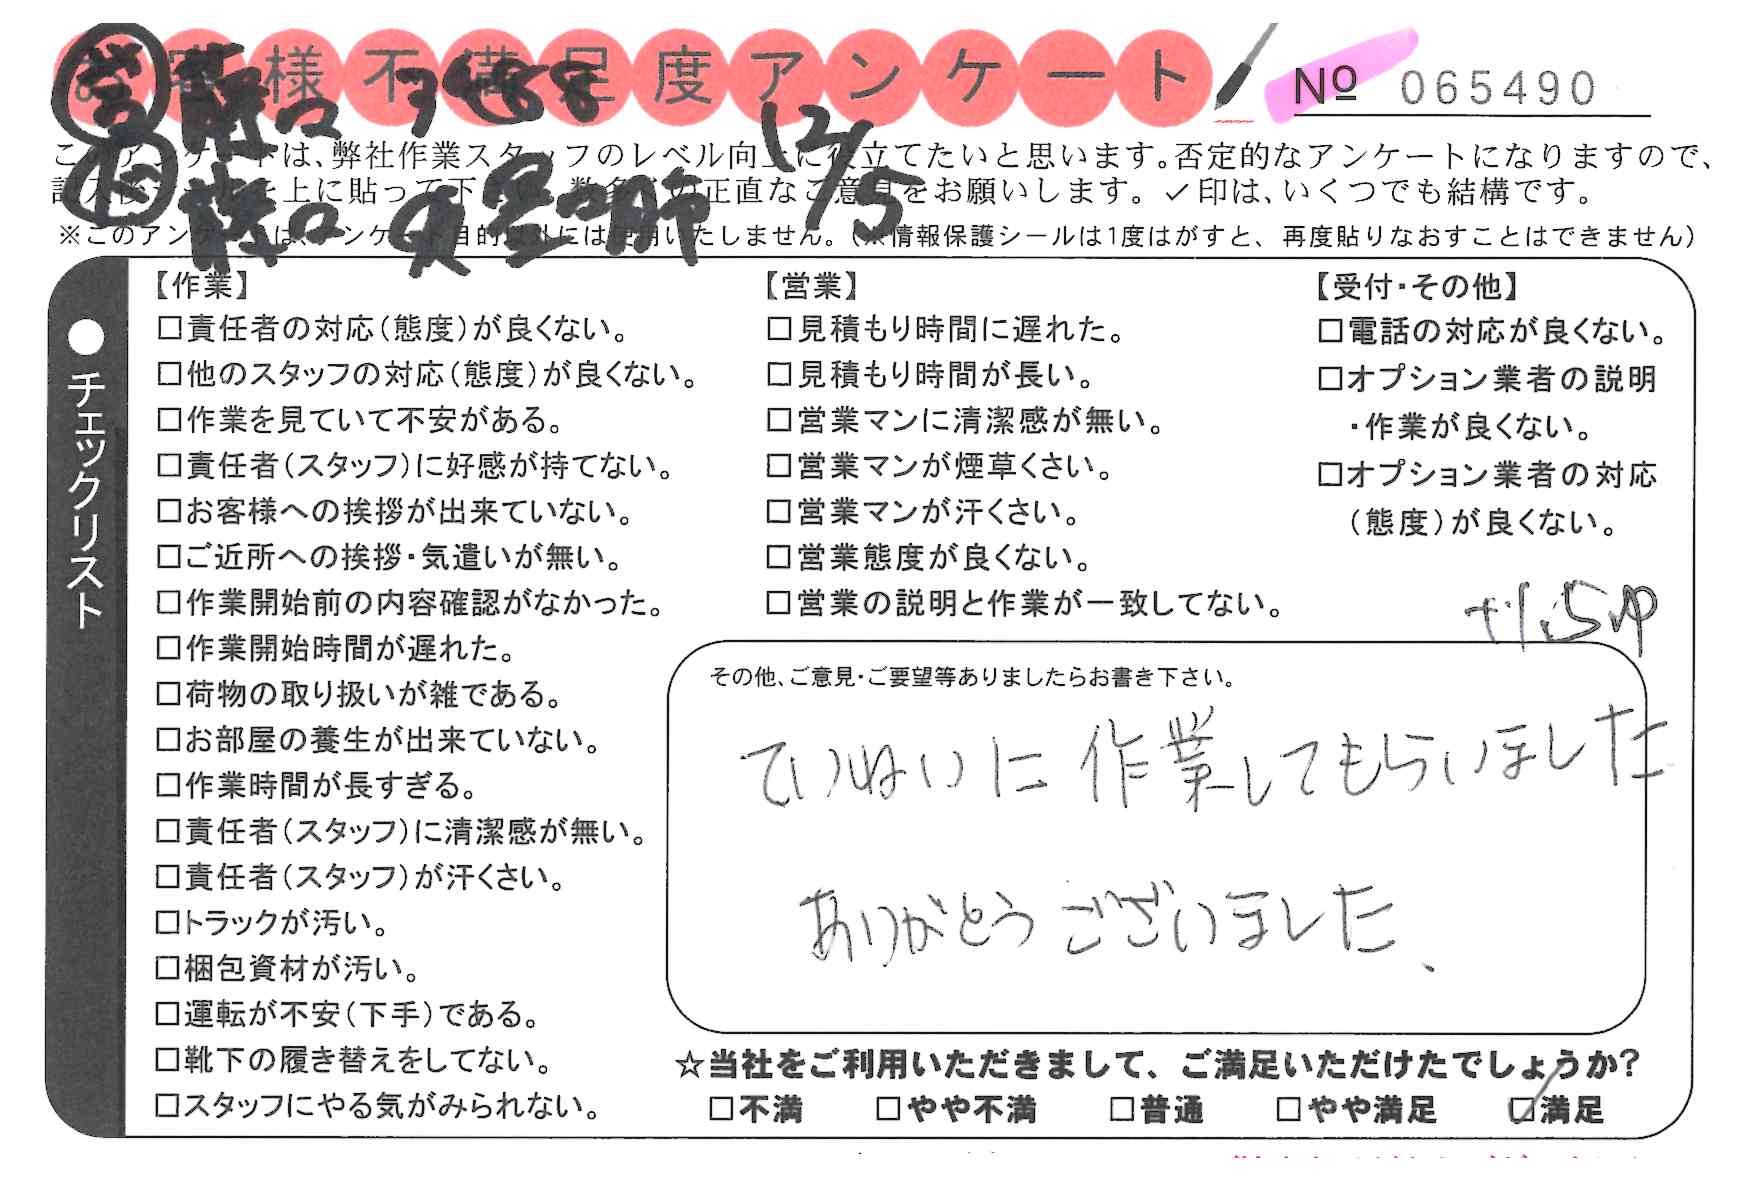 お客様不満足度アンケート
No 065490
12/5
このアンケートは、弊社作業スタッフのレベル向上に役立てたいと思います。否定的なアンケートになりますので、
記入後シールを上に貼って下さい。数多くの正直なご意見をお願いします。✓印は、いくつでも結構です。
※このアンケートは、アンケート目的以外には使用いたしません。(※情報保護シールは1度はがすと、再度貼りなおすことはできません)
●チェックリスト
【作業】
□責任者の対応(態度)が良くない。
□他のスタッフの対応(態度)が良くない。
□作業を見ていて不安がある。
□責任者(スタッフ)に好感が持てない。
□お客様への挨拶が出来ていない。
□ご近所への挨拶・気遣いが無い。
□作業開始前の内容確認がなかった。
□作業開始時間が遅れた。
□荷物の取り扱いが雑である。
□お部屋の養生が出来ていない。
□作業時間が長すぎる。
□責任者(スタッフ)に清潔感が無い。
□責任者(スタッフ)が汗くさい。
□トラックが汚い。
□梱包資材が汚い。
□運転が不安(下手)である。
□靴下の履き替えをしてない。
□スタッフにやる気がみられない。
【営業】
□見積もり時間に遅れた。
□見積もり時間が長い。
□営業マンに清潔感が無い。
□営業マンが煙草くさい。
□営業マンが汗くさい。
□営業態度が良くない。
□営業の説明と作業が一致してない。
【受付・その他】
□電話の対応が良くない。
□オプション業者の説明
・作業が良くない。
□オプション業者の対応
(態度)が良くない。
その他、ご意見・ご要望等ありましたらお書き下さい。
ていねいに作業してもらいました
ありがとうございました、
☆当社をご利用いただきまして、ご満足いただけたでしょうか?
□不満 □やや不満 □普通 □やや満足 ☑満足